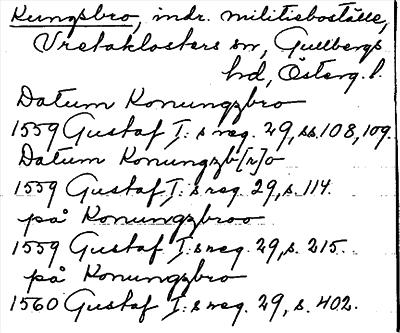 Kungsbro, indr. militieboställe,
Vretaklosters sn, Gullbergs
hd, Österg. l.
Datum Konungzbro
1559 Gustaf I:s reg. 29, ss. 108, 109.
Datum Konungzb[r]o
1559 Gustaf I:s reg. 29, s. 114.
på Konungzbroo
1559 Gustaf I:s reg. 29, s. 215.
på Konungzbro
1560 Gustaf I:s reg. 29, s. 402.